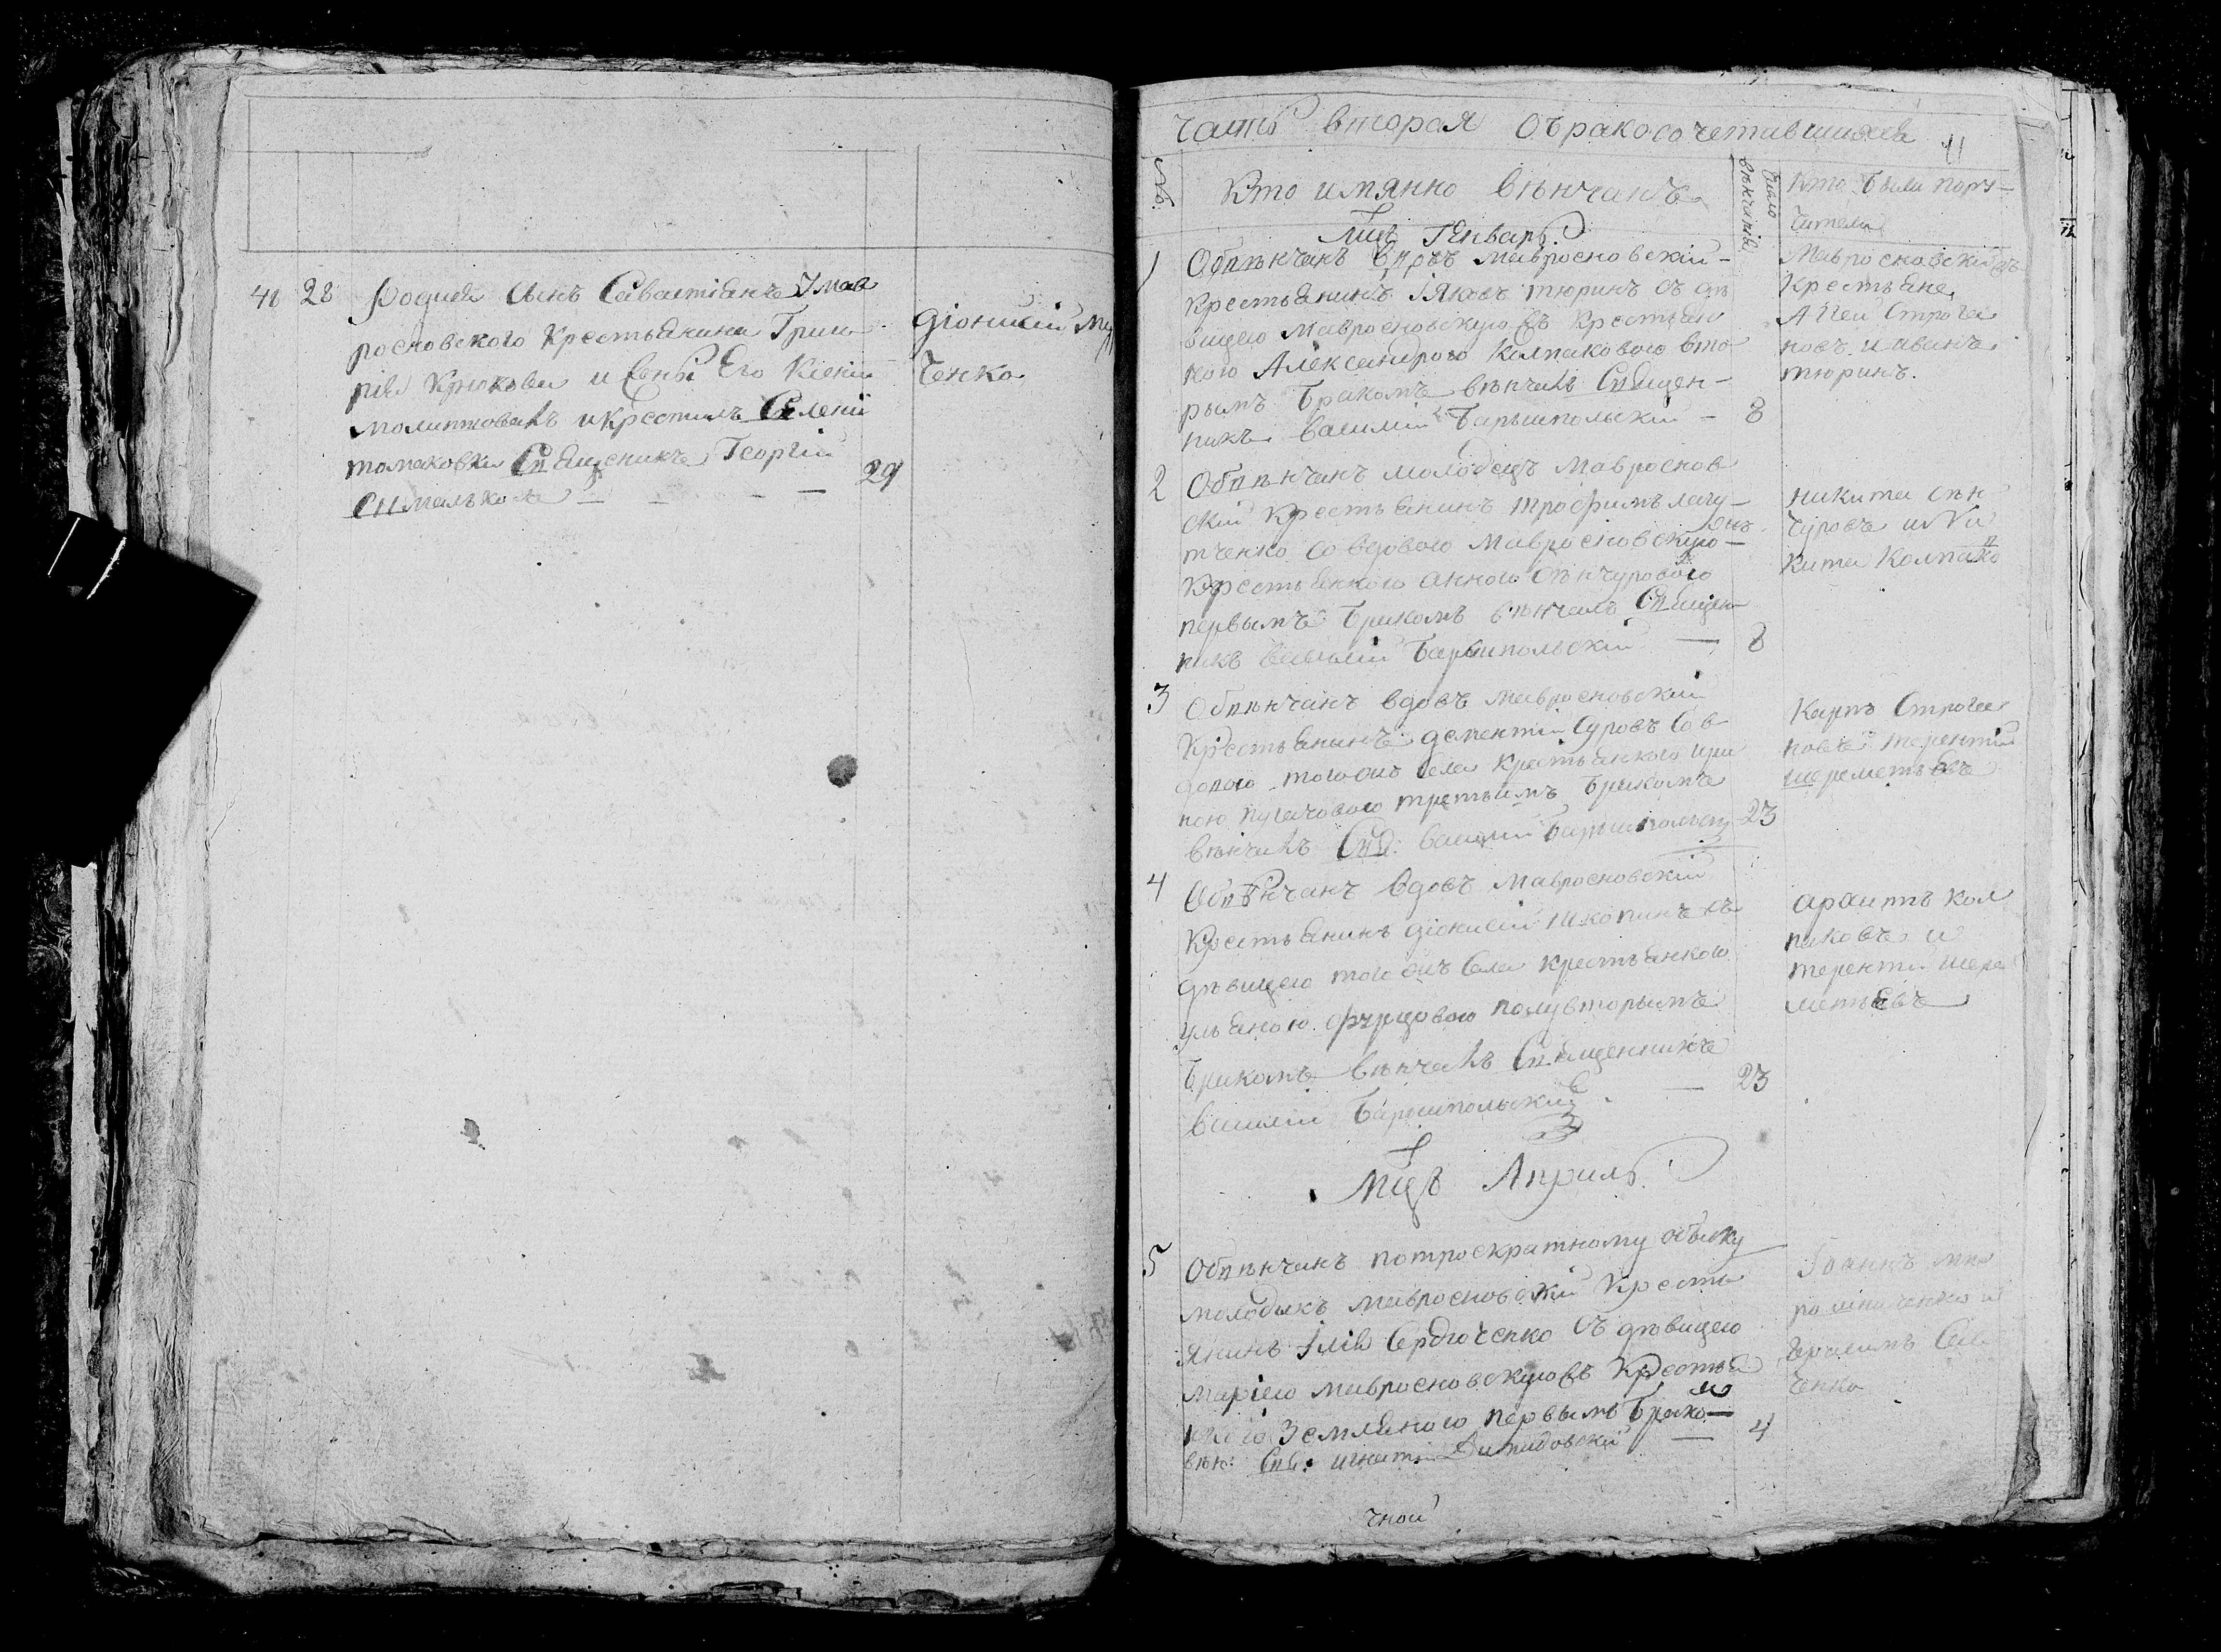 41 28 Родися Сынъ Савастіанъ У мав
росновского Крестьянина Григо
рія Крюкова и Евны Его Ксении
молитвовалъ и крестилъ Селенія
томаковки Священикъ Георгій
29
Діонисій
ченко
Часть вторая Обракосочетавшихся
11
№
Кто имянно венчанъ
Число венчанія
Кто были пору-
чители
Мцъ Генварь
1 Обвѣнчанъ вдовъ Мавросновскій
Крестьянинъ Іяковъ Тюринъ съ дѣ
вицею Мавросновскихъ Крестьян
кою Александрою Колпаковою вто
рымъ Бракомъ вѣнчалъ Священ-
никъ Василій Барышпольскій - 8
Мавросновскій
Крестьяне
Аггей Строга
новъ и иванъ
тюринъ.
2 Обвѣнчанъ молодецъ Мавроснов
скій Крестьянинъ трофимъ лагу-
тченко со вдовою Мавросновскую
Крестьянкою Анною Сѣнчуровою
первымъ Бракомъ вѣнчалъ Священ
никъ Василій Барышпольскій — 8
никита сѣн
чуровъ и Ни
кита Колпако
3 Обвѣнчанъ вдовъ мавросновскій
Крестьянинъ дементій Суровъ Со в
довою тогожъ Села Крестьянкою ири
ною пугачовою третьимъ Бракомъ
вѣнчалъ Свя: Василий Барышпольск 23
Карпъ Строга
новъ терентій
шереметьевъ
4 Обвѣнчанъ вдовъ Мавросновскій
Крестьянинъ діонисій шкопинъ съ
дѣвицею тогожъ Села Крестьянкою
ульяною фурцовою полувторымъ
Бракомъ вѣнчалъ Священникъ
Василій Барышпольскій — 23
архипъ кол
паковъ и
терентій шере
метьевъ
Мцъ Априль
5 Обвѣнчанъ по троекратному обыску
молодикъ мавросновскій Кресть
янинъ Илія Сердюченко съ дѣвицею
Маріею мавросновскую Крестья
Земляною первымъ Брако
вѣн: Свя: игнатій Димидовскій — 4
Іоаннъ ми
рошниченко и
Герасимъ
ченко
чной